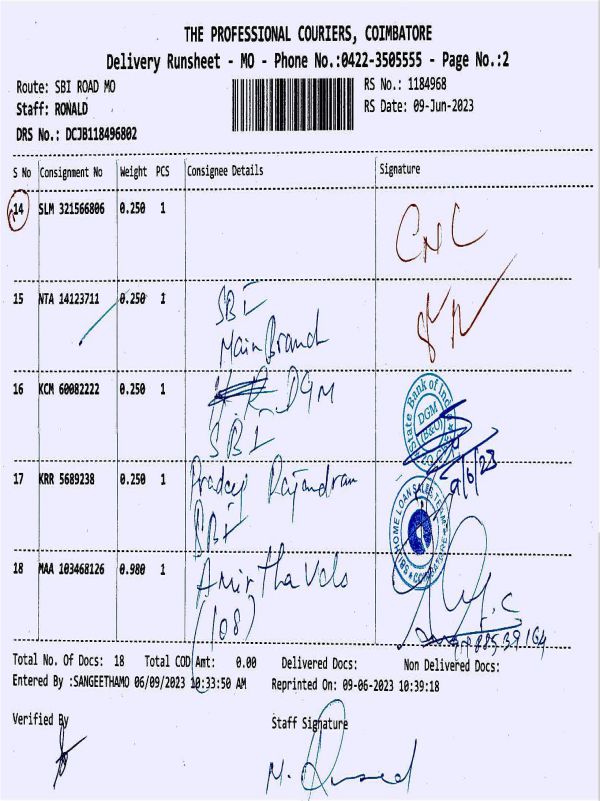 THE PROFESSIONAL COURIERS, COIMBATORE
Delivery Runsheet - MO - Phone No.:0422-3505555 - Page No.:2
Route: SBI ROAD MO
RS No.: 1184968
Staff: RONALD
RS Date: 09-Jun-2023
DRS No.: DCJB118496802
S No Consignment No Weight PCS Consignee Details Signature
14 SLM 321566806 0.250 1 CNC
15 NTA 14123711 0.250 1 SBI
Main Branch
16 KCM 60082222 0.250 1 DGM
SBI
State Bank of India
DGM
(B&O)
9/6/23
17 KRR 5689238 0.250 1 Pradeep Rajandran
SBI
SBI HOME LOAN SALES TEAM
COIMBATORE
18 MAA 103468126 0.980 1
(108)
Total No. Of Docs: 18 Total COD Amt: 0.00 Delivered Docs: Non Delivered Docs:
Entered By :SANGEETHAMO 06/09/2023 10:33:50 AM Reprinted On: 09-06-2023 10:39:18
Verified By
Staff Signature